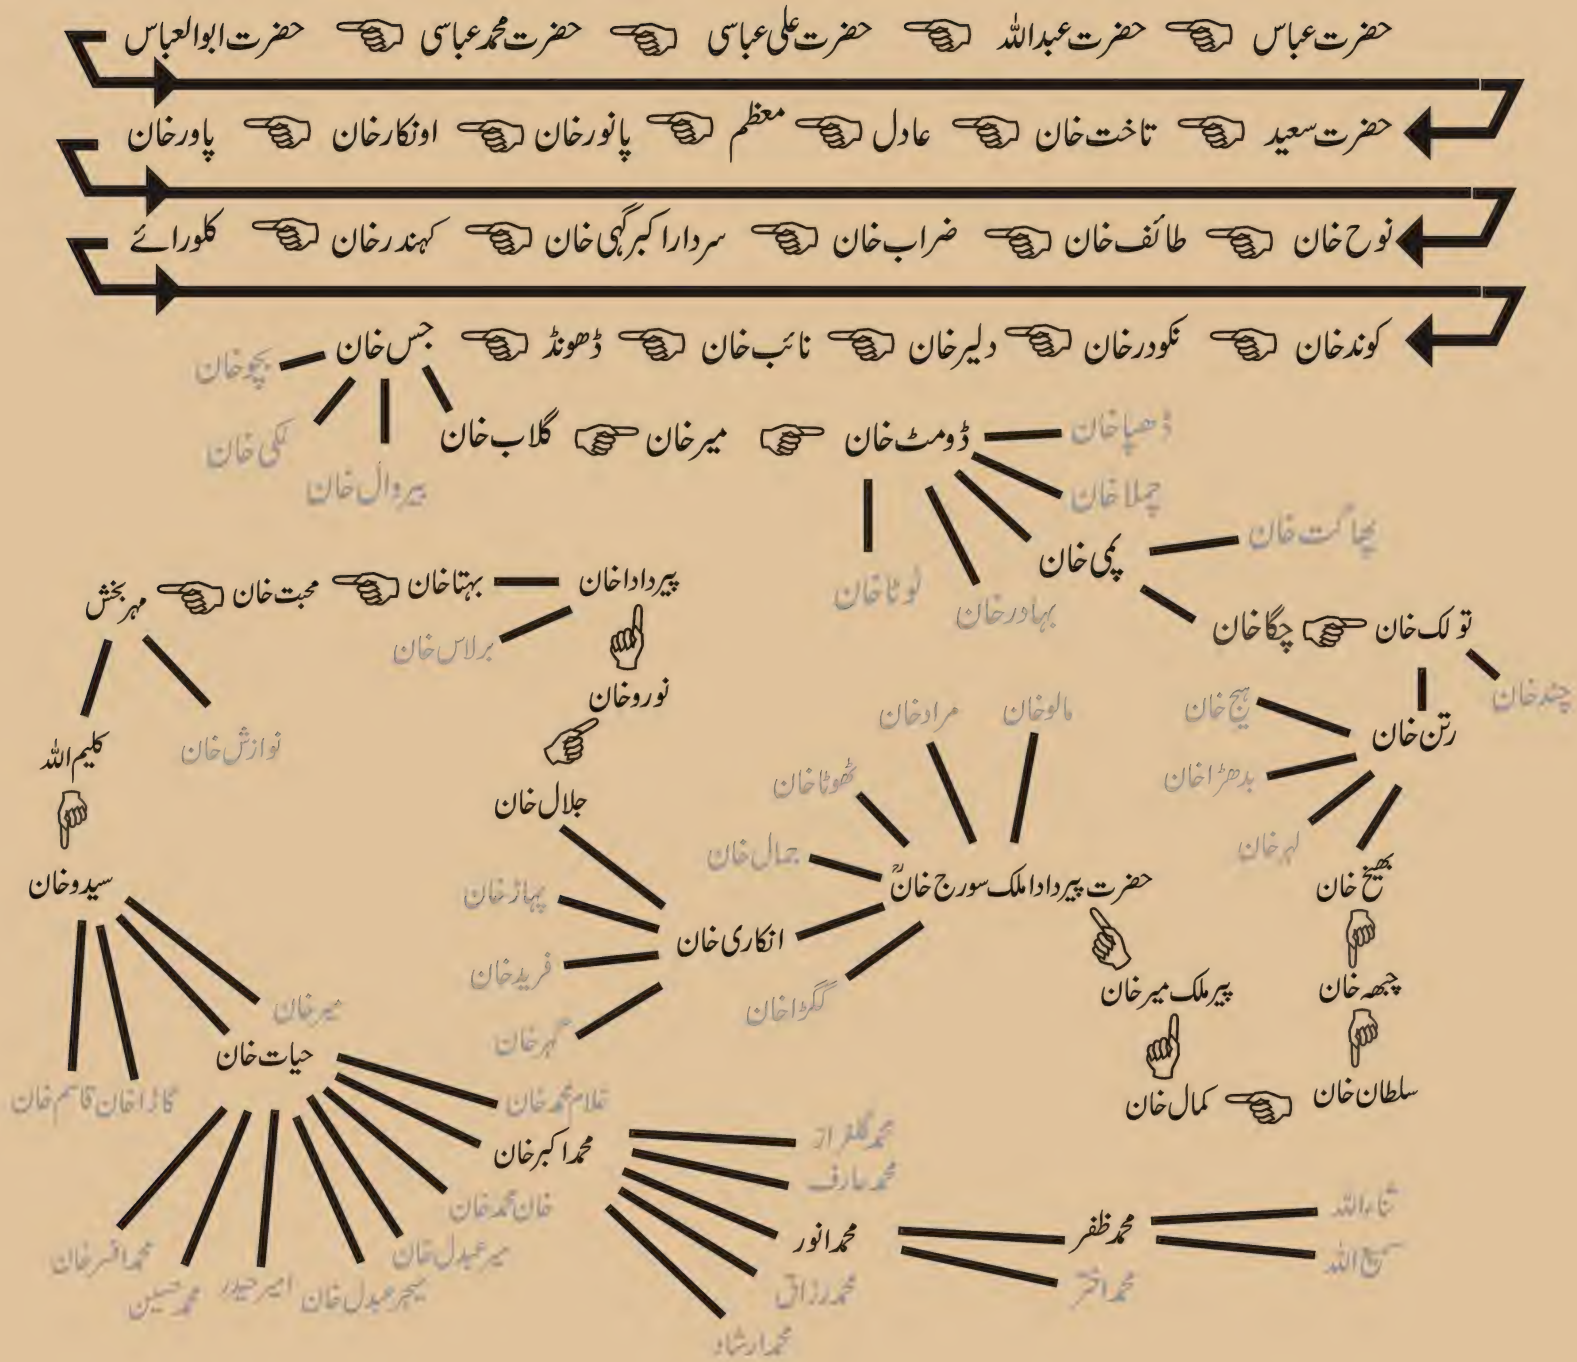 حضرت عباس حضرت عبداللہ حضرت علی عباسی حضرت محمد عباسی حضرت ابوالعباس
حضرت سعید تاخت خان عادل معظم پانور خان اونکار خان پاور خان
نوح خان طائف خان ضراب خان سردار اکبر گہی خان کہندر خان کلورائے
کوند خان نکودر خان دلیر خان نائب خان ڈھونڈ جس خان
بچو خان
لکی خان
بیروال خان
گلاب خان میر خان ڈومٹ خان ڈھپا خان
چملا خان
لوٹا خان
بہادر خان
پمی خان
پھاگت خان
چگا خان تولک خان
چند خان
رتن خان
ہیج خان
بدھڑا خان
لہر خان
بھیخ خان
چبھہ خان
سلطان خان
کمال خان
پیر ملک میر خان
حضرت پیر دادا ملک سورج خانؒ
مالو خان
مراد خان
ٹھوٹا خان
جمال خان
گکڑا خان
انکاری خان
پہاڑ خان
فرید خان
گہر خان
جلال خان
نورو خان
پیر دادا خان
برلاس خان
بہتا خان محبت خان مہر بخش
نوازش خان
کلیم اللہ
سیدو خان
میر خان
حیات خان
گاڈا خان قاسم خان
غلام محمد خان
محمد اکبر خان
خان محمد خان
میر عبدل خان
میجر عبدل خان
امیر حیدر
محمد حسین
محمد افسر خان
محمد گلفراز
محمد عارف
محمد انور
محمد رزاق
محمد ارشاد
محمد ظفر
محمد اختر
ثناء اللہ
سمیع اللہ